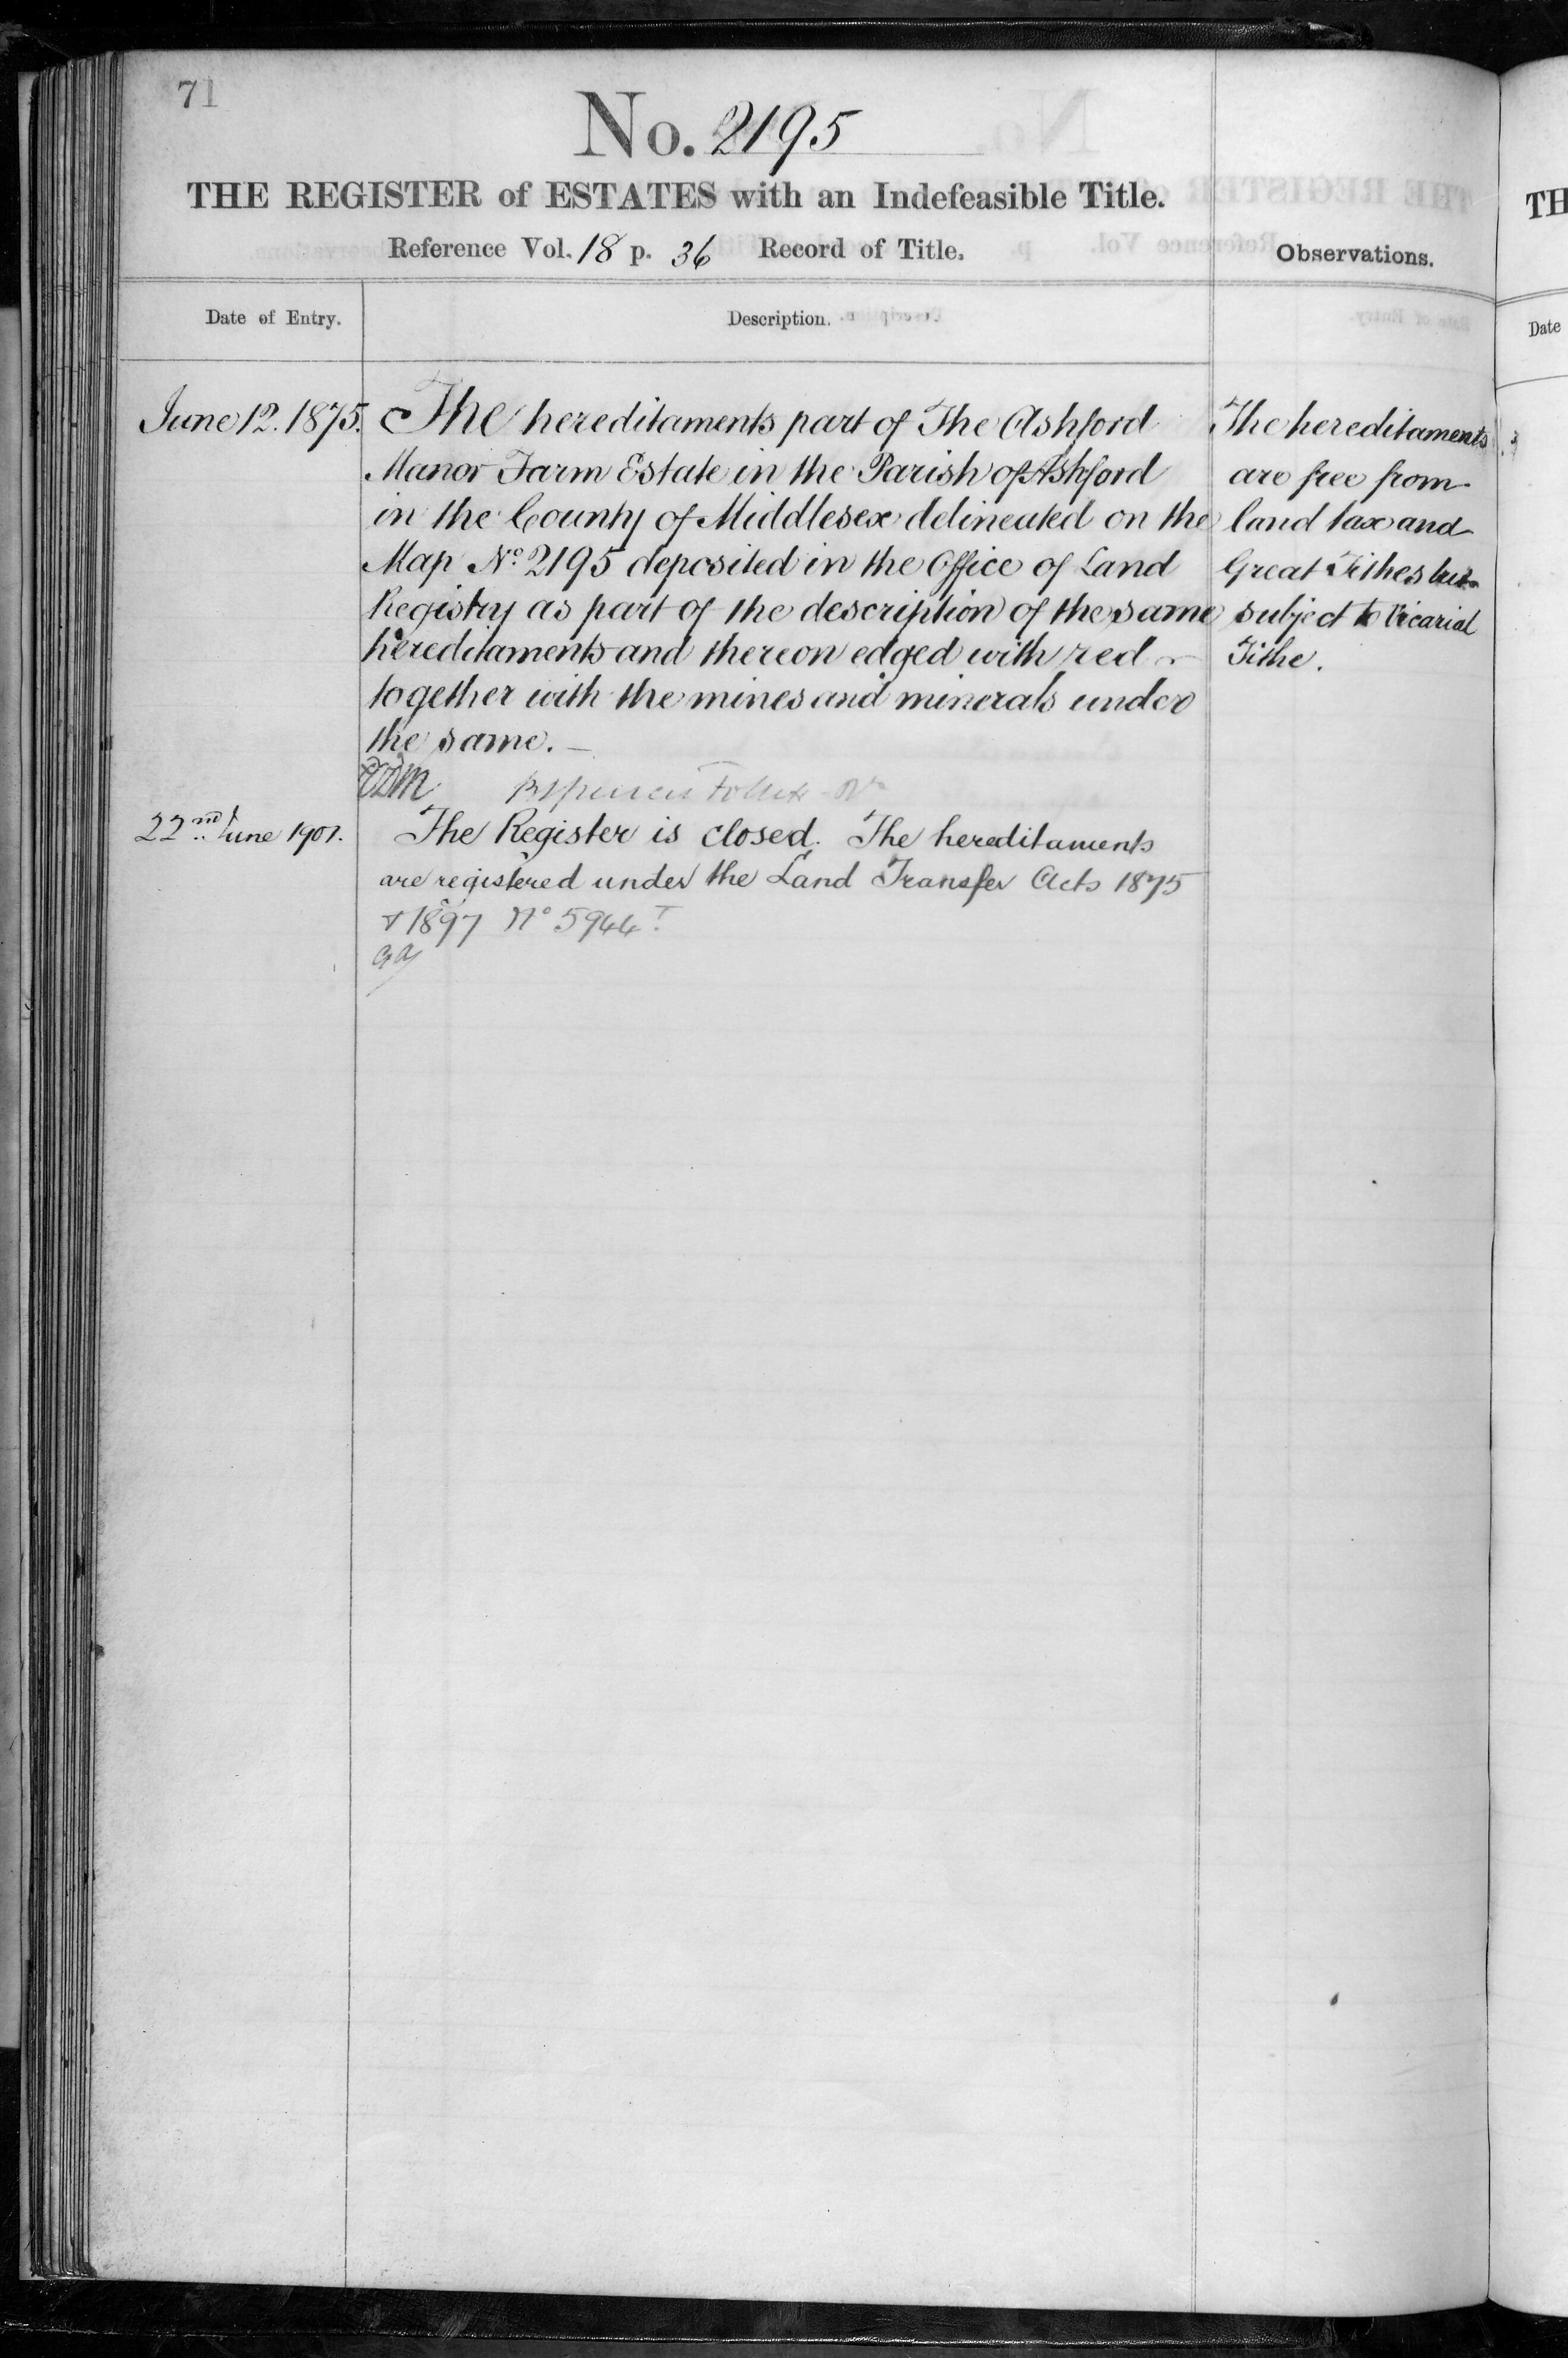 71
No. 2195
THE REGISTER of ESTATES with an Indefeasible Title.
Reference Vol. 18 p. 36 Record of Title.
Observations.
Date of Entry.
Description.
June 12. 1875.
The hereditaments part of The Ashford
Manor Farm Estate in the Parish of Ashford
in the County of Middlesex delineated on the
Map No. 2195 deposited in the Office of Land
Registry as part of the description of the same
hereditaments and thereon edged with red
together with the mines and minerals under
the same.
The hereditaments
are free from
land tax and
Great Tithes but
subject to Vicarial
Tithe.
22nd June 1901.
The Register is closed. The hereditaments
are registered under the Land Transfer Acts 1875
& 1897 No 5944
TH
Date